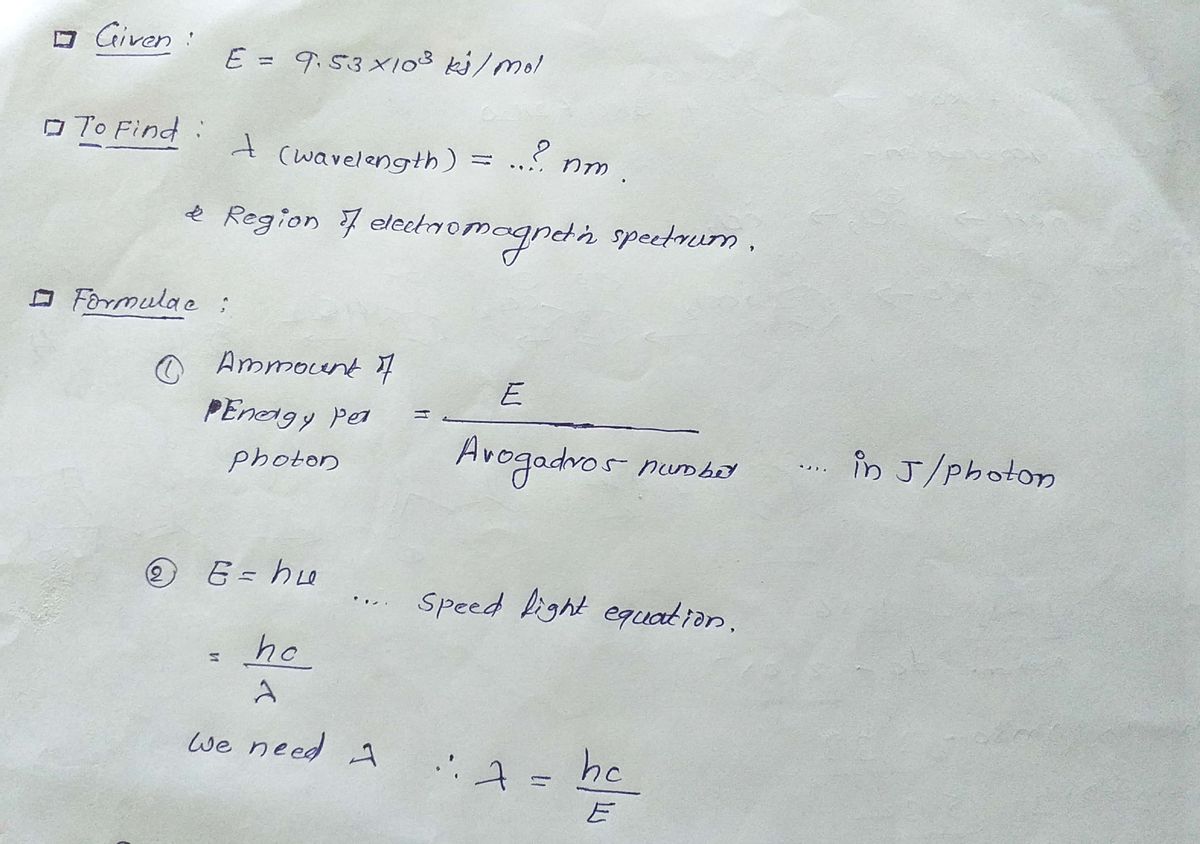 Given :
E = 9.53 ×10³ kj/mol
To Find :
λ (wavelength) = ..? nm.
& Region of electromagnetic spectrum.
Formulae :
① Ammount of
Energy per
photon
= E / Avogadros number .... in J/photon
② E = hν .... Speed light equation.
= hc / λ
We need λ ∴ λ = hc / E